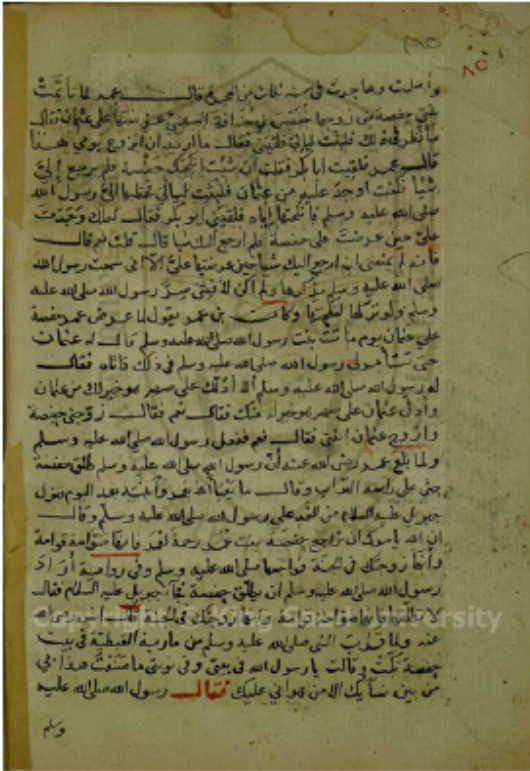 ٨٥
وأسلمت وهاجرت في سنة ثلاث من الهجرة قال عمر لما تأيمت
بنتي حفصة من زوجها خنيس بن حذافة السهمي عرضتها على عثمان فقال
سأنظر في ذلك فلبثت ليالي فلقيني فقال ما اريد ان اتزوج يومي هذا
قال عمر فلقيت ابا بكر فقلت ان شئت انكحتك حفصة فلم يرجع إليّ
شيا فكنت اوجد عليه من عثمان فلبثت ليالي فخطبها اليّ رسول الله
صلى الله عليه وسلم فانكحتها إياه فلقيني أبو بكر فقال لعلك وجدت
عليّ حين عرضت علي حفصة فلم ارجع اليك شيا قال قلت نعم قال
فانه لم يمنعني ان ارجع اليك شيا حين عرضتها عليّ الا اني سمعت رسول الله
صلى الله عليه وسلم يذكرها ولم أكن لافشي سرّ رسول الله صلى الله عليه
وسلم ولو تركها لنكحتها وكانت بن عمر يقول لما عرض عمر حفصة
على عثمان يوم ماتت بنت رسول الله صلى الله عليه وسلم قال له عثمان
حتى رسول الله صلى الله عليه وسلم في ذلك فاتاه فقال
له رسول الله صلى الله عليه وسلم ألا أدلك على صهر هو خير لك من عثمان
وادل عثمان على صهر هو خير له منك فقال نعم فقال زوجني حفصة
وازوج عثمان ابنتي فقال نعم ففعل رسول الله صلى الله عليه وسلم
ولما بلغ عمر رضي الله عنه أن رسول الله صلى الله عليه وسلم طلق حفصة
حثى على راسه التراب وقال ما يعبأ الله بعمر وابنته بعد اليوم فنزل
جبريل عليه السلام من الغد على رسول الله صلى الله عليه وسلم وقال
ان الله يامرك ان تراجع حفصة بنت عمر رحمة لعمر فإنها صوامة قوامة
وأنها زوجتك في الجنة فراجعها صلى الله عليه وسلم وفي رواية أراد
رسول الله صلى الله عليه وسلم ان يطلق حفصة فجاء جبريل عليه السلام فقال
لا تطلقها فانها صوامة قوامة وانها زوجتك في الجنة
عنه ولما قرب النبي صلى الله عليه وسلم من مارية القبطية في بيت
حفصة بكت وقالت يا رسول الله في بيتي وفي نوبتي ما صنعت هذا بي
من بين نسايك الا من هواني عليك فقال رسول الله صلى الله عليه
وسلم